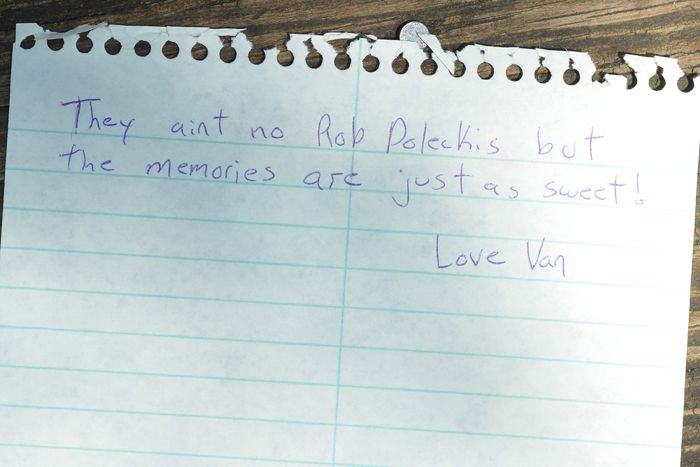 They aint no Rob Poleckis but
the memories are just as sweet!
Love Van